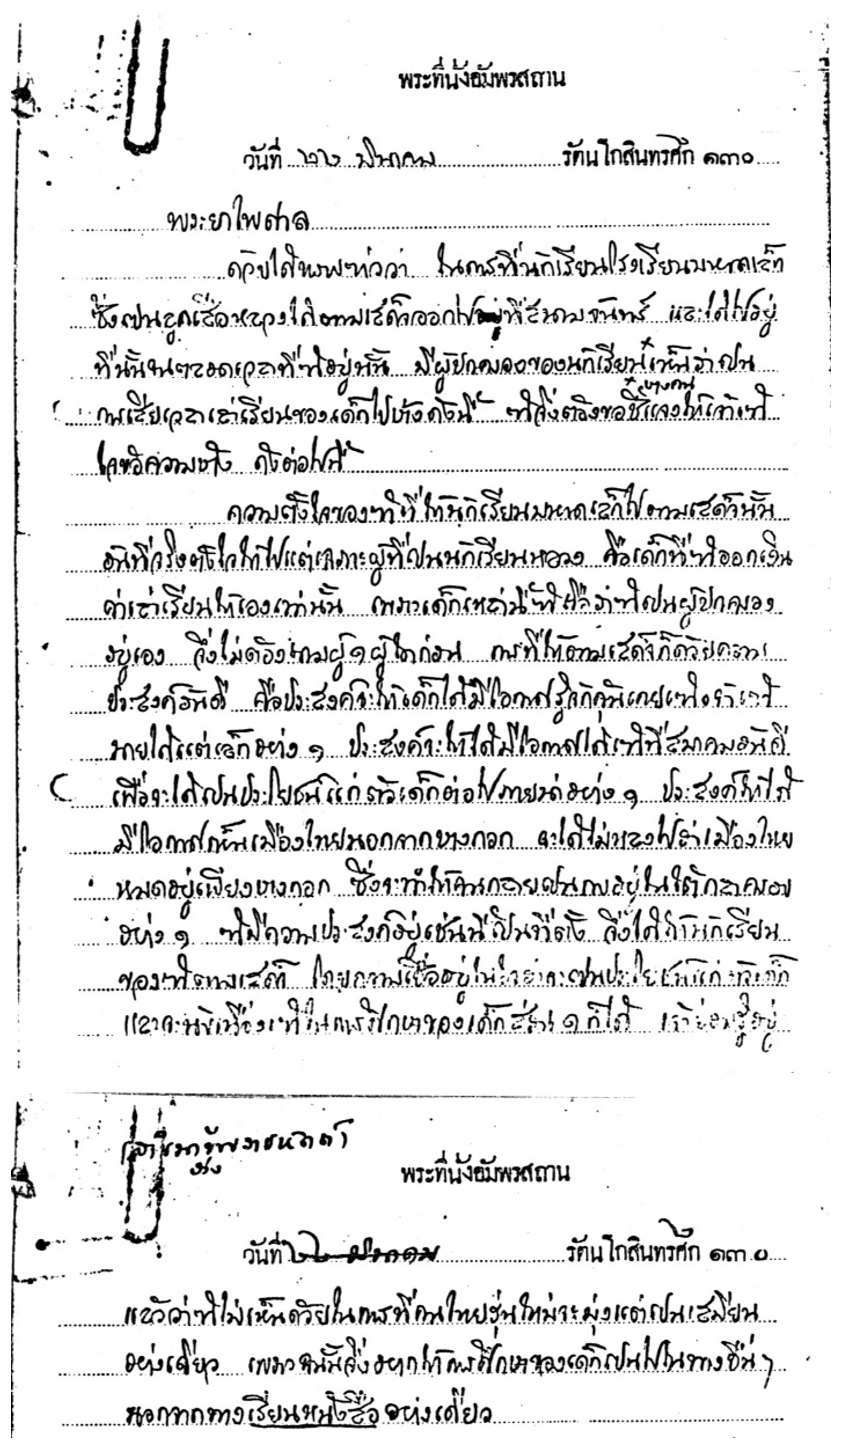 พระที่นั่งอัมพรสถาน
วันที่ ๒๒ มีนาคม รัตนโกสินทรศก ๑๓๐
พระยาไพศาล
ด้วยได้ทราบข่าวว่า ในการที่นักเรียนโรงเรียนมหาดเล็ก
ซึ่งเป็นลูกเสือหลวงได้ตามเสด็จออกไปอยู่ที่สนามจันทร์ และได้ไปอยู่
ที่นั้นจนตลอดเวลาที่ข้าอยู่นั้น มีผู้ปกครองของนักเรียนเห็นว่าเป็น
บางคน
การเสียเวลาเล่าเรียนของเด็กไปบ้างดังนี้ ข้าจึ่งต้องขอชี้แจงให้เจ้าเข้า
ใจข้อความบ้าง ดังต่อไปนี้
ความตั้งใจของข้าที่ให้นักเรียนมหาดเล็กไปตามเสด็จนั้น
อันที่จริงตั้งใจให้ไปแต่เฉพาะผู้ที่เป็นนักเรียนหลวง คือเด็กที่ข้าออกเงิน
ค่าเล่าเรียนให้เองเท่านั้น เพราะเด็กเหล่านี้ข้าถือว่าข้าเป็นผู้ปกครอง
อยู่เอง จึ่งไม่ต้องถามผู้ ๑ ผู้ใดก่อน การที่ให้ตามเสด็จก็ด้วยความ
ประสงค์อันดี คือประสงค์จะให้เด็กได้มีโอกาสรู้จักคุ้นเคยเข้าเจ้าเข้า
นายได้แต่เล็กอย่าง ๑ ประสงค์จะให้ได้มีโอกาสได้เข้าที่สมาคมอันดี
เพื่อจะได้เป็นประโยชน์แก่ตัวเด็กต่อไปภายน่าอย่าง ๑ ประสงค์ให้ได้
มีโอกาสเห็นเมืองไทยนอกจากบางกอก จะได้ไม่หลงไปว่าเมืองไทย
หมดอยู่เพียงบางกอก ซึ่งจะทำให้คนกลายเป็นกบอยู่ในใต้กะลาครอบ
อย่าง ๑ ข้ามีความประสงค์อยู่เช่นนี้เป็นที่ตั้ง จึ่งได้ให้นักเรียน
ของข้าตามเสด็จ โดยความเชื่ออยู่ในใจว่าจะเป็นประโยชน์แก่ตัวเด็ก
และจะนับเนื่องเข้าในการศึกษาของเด็กส่วน ๑ ก็ได้ เจ้าย่อมรู้อยู่
พระที่นั่งอัมพรสถาน
วันที่ ๒๒ มีนาคม รัตนโกสินทรศก ๑๓๐
แล้วว่าข้าไม่เห็นด้วยในการที่คนไทยรุ่นใหม่จะมุ่งแต่เป็นเสมียน
อย่างเดียว เพราะฉะนั้นจึ่งอยากให้การศึกษาของเด็กเป็นไปในทางอื่น ๆ
นอกจากทางเรียนหนังสืออย่างเดียว